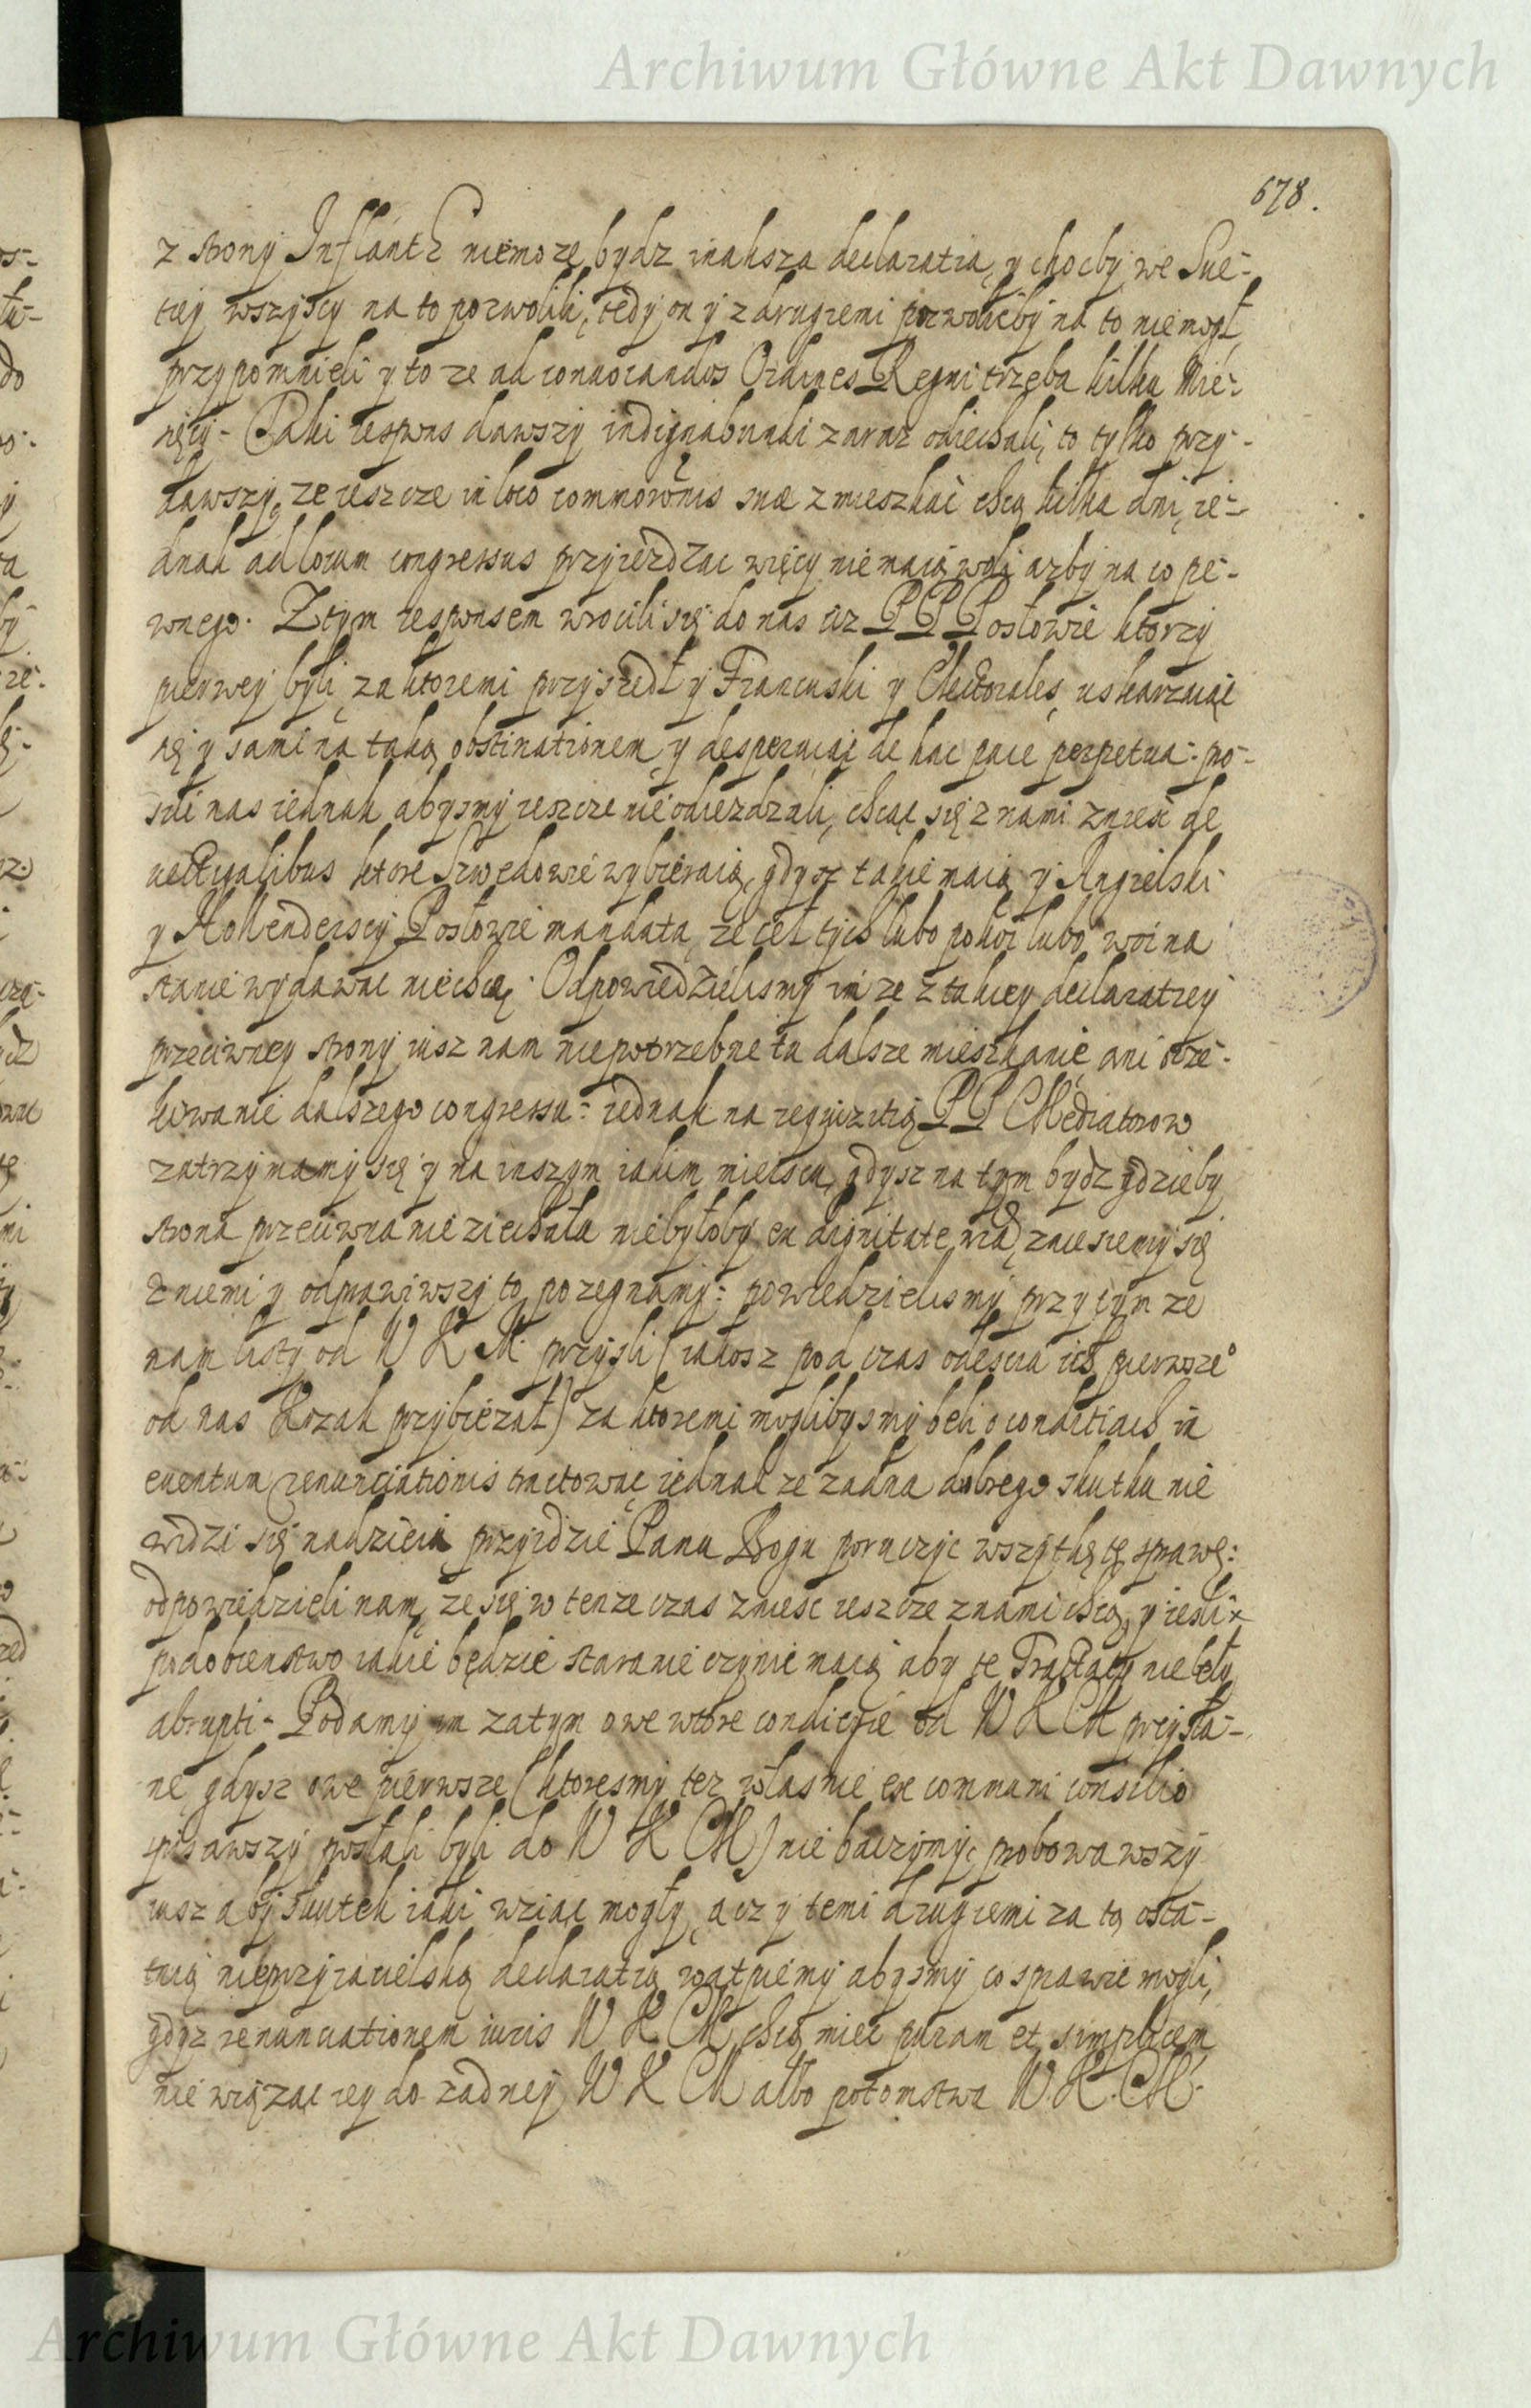 Archiwum Główne Akt Dawnych
678.
z strony Inflant niemoże bydz inaksza declaratia, y chocby we Sue-
tiey wszyscy na to pozwolili, tedy on y z drugiemi pozwolicby na to niemogł,
przypomnieli y to ze ad conuocandos Ordines Regni trzeba kilku Mie-
sięcy. Taki respons dawszy indignabundi zaraz odiechali, to tylko przy-
dawszy, ze ieszcze in loco commorõnis suæ zmieszkać chcą kilka dni, ie-
dnak ad locum congressus przyiezdzac więcy nie maią woli azby na co pe-
wnego. Z tym responsem wrocili się do nas ciz PPPosłowie ktorzy
pierwey byli, za ktoremi przyszedł y Francuski y Electorales, uskarzaiąc
się y sami na taką obstinationem y desperuiąc de hac pace perpetua: pro-
sili nas iednak abysmy ieszcze nie odiezdzali, chcąc się z nami znieść de
uectigalibus ktore Szwedowie wybieraią, gdysz takie maią y Angielski
y Hollenderscy Posłowie mandata, ze ceł tych lubo pokoi lubo woina
stanie wydawac niechcą. Odpowiedzielismy im ze z takiey declaratiey
przeciwney strony iusz nam niepotrzebne tu dalsze mieszkanie, ani ocze-
kiwanie dalszego congressu: iednak na requizitią PP Mediatorow
zatrzymamy się y na inszym iakim mieiscu, gdysz na tym bydz gdzieby
strona przeciwna nie ziechała niebyłoby ex dignitate nrã, zniesiemy się
z niemi y odprawiwszy to pozegnamy: powiedzielismy przy tym ze
nam listy od W K M. przyszli (iakosz pod czas odescia ich pierwsze°
od nas Kozak przybiezał) za ktoremi moglibysmy beli o conditiach in
euentum renunciationis tractowac, iednak ze zadna dobrego skutku nie
widzi się nadzieia przyidzie Panu Bogu poruczyc wszytkę tę sprawę:
odpowiedzieli nam, ze się w tenze czas zniesc ieszcze z nami chcą, y iesli
podobienstwo iakie będzie staranie czynic maią aby te Tractaty nie beły
abrupti. Podamy im zatym owe wtore conditie od W K M przysła-
ne, gdysz owe pierwsze (ktoresmy tez własnie ex communi consilio
spisawszy posłali byli do W K M) nie baczymy, probowawszy
iusz aby skutek iaki wziąc mogły, a cz y temi drugiemi za tą osta-
tnią nieprzyiacielską declaratią wątpiemy abysmy co sprawic mogli,
gdyz renunciationem iuris W K M chcą miec puram et simplicem
nie wiążąc iey do żadney W K M albo potomstwa W. K. M.
Archiwum Główne Akt Dawnych